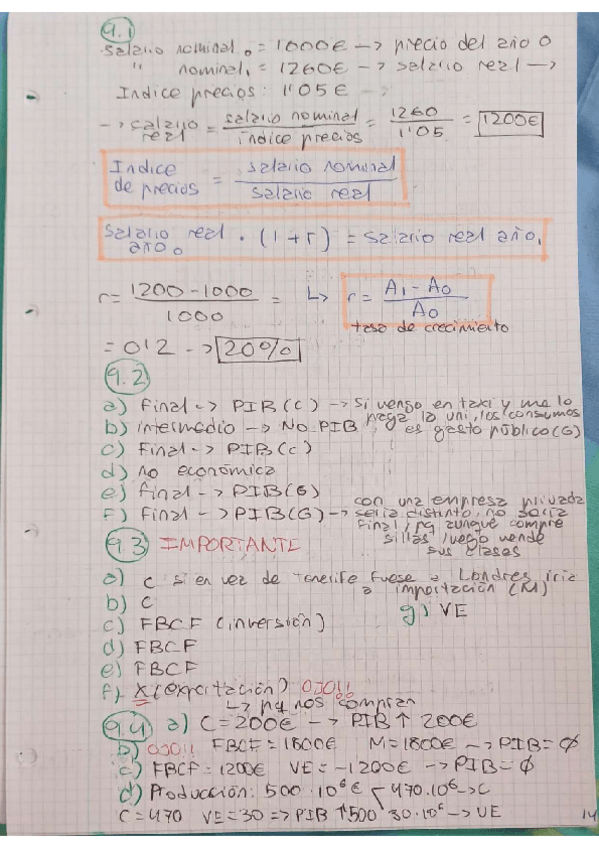 9.1
salario nominal₀ = 1000€ -> precio del año 0
" nominal₁ = 1260€ -> salario real ->
Indice precios: 1'05€
-> salario real = salario nominal / indice precios = 1260 / 1'05 = 1200€
Indice de precios = salario nominal / salario real
Salario real año₀ · (1+r) = salario real año₁
r = 1200-1000 / 1000 = ↳ r = A₁ - A₀ / A₀
tasa de crecimiento
= 0'2 -> 20%
9.2
a) Final -> PIB (C) -> Si vengo en taxi y me lo
paga la uni, los consumos
b) intermedio -> No PIB es gasto público (G)
c) Final -> PIB (C)
d) no económica
e) final -> PIB (G)
f) Final -> PIB (G) -> con una empresa privada
sería distinto, no sería
final, pq aunque compre
sillas luego vende
sus clases
9.3 IMPORTANTE
a) C si en vez de Tenerife fuese a Londres iria
a importación (M)
b) C
c) FBCF (inversión) g) VE
d) FBCF
e) FBCF
f) X (exportación) OJO!!
↳ pq nos compran
9.4 a) C = 200€ -> PIB ↑ 200€
b) OJO!! FBCF = 1800€ M = 1800€ -> PIB = Ø
c) FBCF = 1200€ VE = -1200€ -> PIB = Ø
d) Producción: 500 · 10⁶ € 470·10⁶ -> C
C = 470 VE = 30 => PIB ↑ 500 30·10⁶ -> VE
14